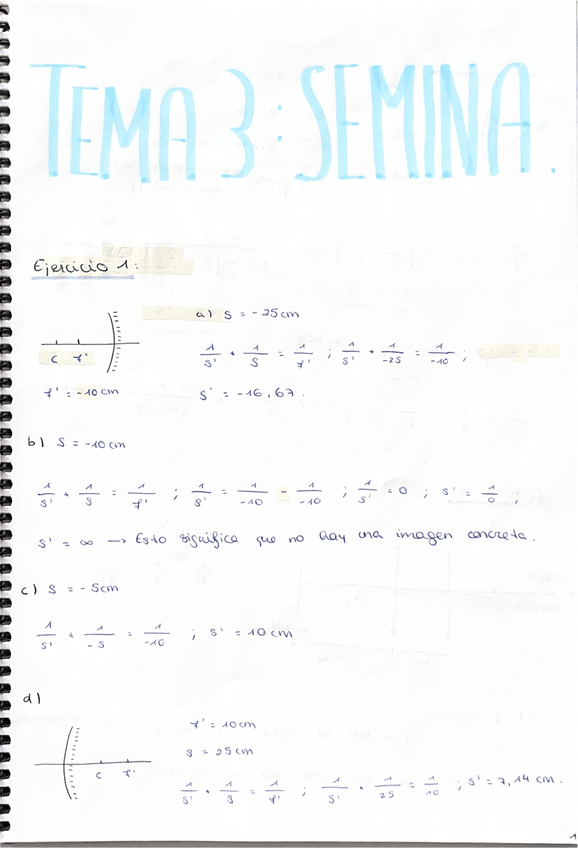 TEMA 3: SEMINA.
Ejercicio 1:
a) S = -25 cm
1/S' + 1/S = 1/f' ; 1/S' + 1/-25 = 1/-10 ;
C f'
f' = -10 cm
S' = -16,67.
b) S = -10 cm
1/S' + 1/S = 1/f' ; 1/S' = 1/-10 - 1/-10 ; 1/S' = 0 ; S' = 1/0 ;
S' = ∞ → Esto significa que no hay una imagen concreta.
c) S = -5 cm
1/S' + 1/-5 = 1/-10 ; S' = 10 cm
d)
f' = 10 cm
S = 25 cm
C f'
1/S' + 1/S = 1/f' ; 1/S' + 1/25 = 1/10 ; S' = 7,14 cm.
1